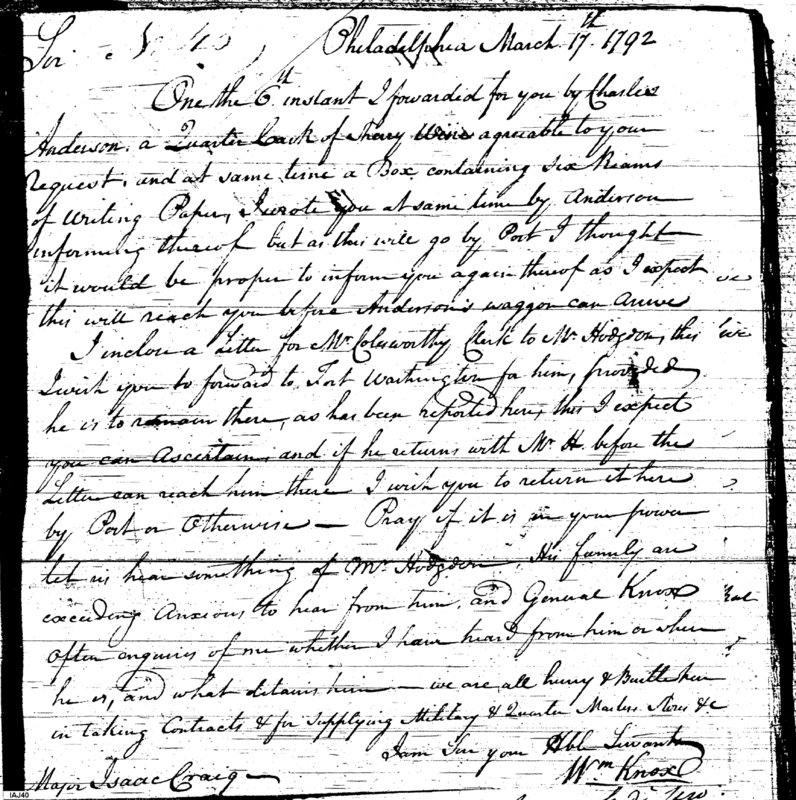 Sir. No 40 Philadelphia March 17th 1792
One the 6th instant I forwarded for you by Charles
Anderson. a Quarter Cask of Sherry Wine agreable to your
request, and at same time a Box, containing six Reams
of Writing Paper, I wrote you at same time by Anderson
informing thereof but as this will go by Post I thought
it would be proper to inform you again thereof as I expect
this will reach you before Anderson's waggon can Arive
I inclose a Letter for Mr Colesworthy Clerk to Mr Hodgdon, this
I wish you to forward to Fort Washington for him, provided
he is to remain there, as has been reported here, this I expect
you can Ascertain, and if he returns with Mr H. before the
Letter can reach him there I wish you to return it here
by Post or Otherwise — Pray if it is in your power
let us hear something of Mr Hodgdon, His family are
exceeding Anxious to hear from him, and General Knox
often enquires of me whether I have heard from him or where
he is, and what detains him — we are all hurry & Bustle here
in taking Contracts & for Supplying Military & Quarter Masters Stores &c
I am Sir your Hble Servant
Wm Knox
Major Isaac Craig
IAJ40